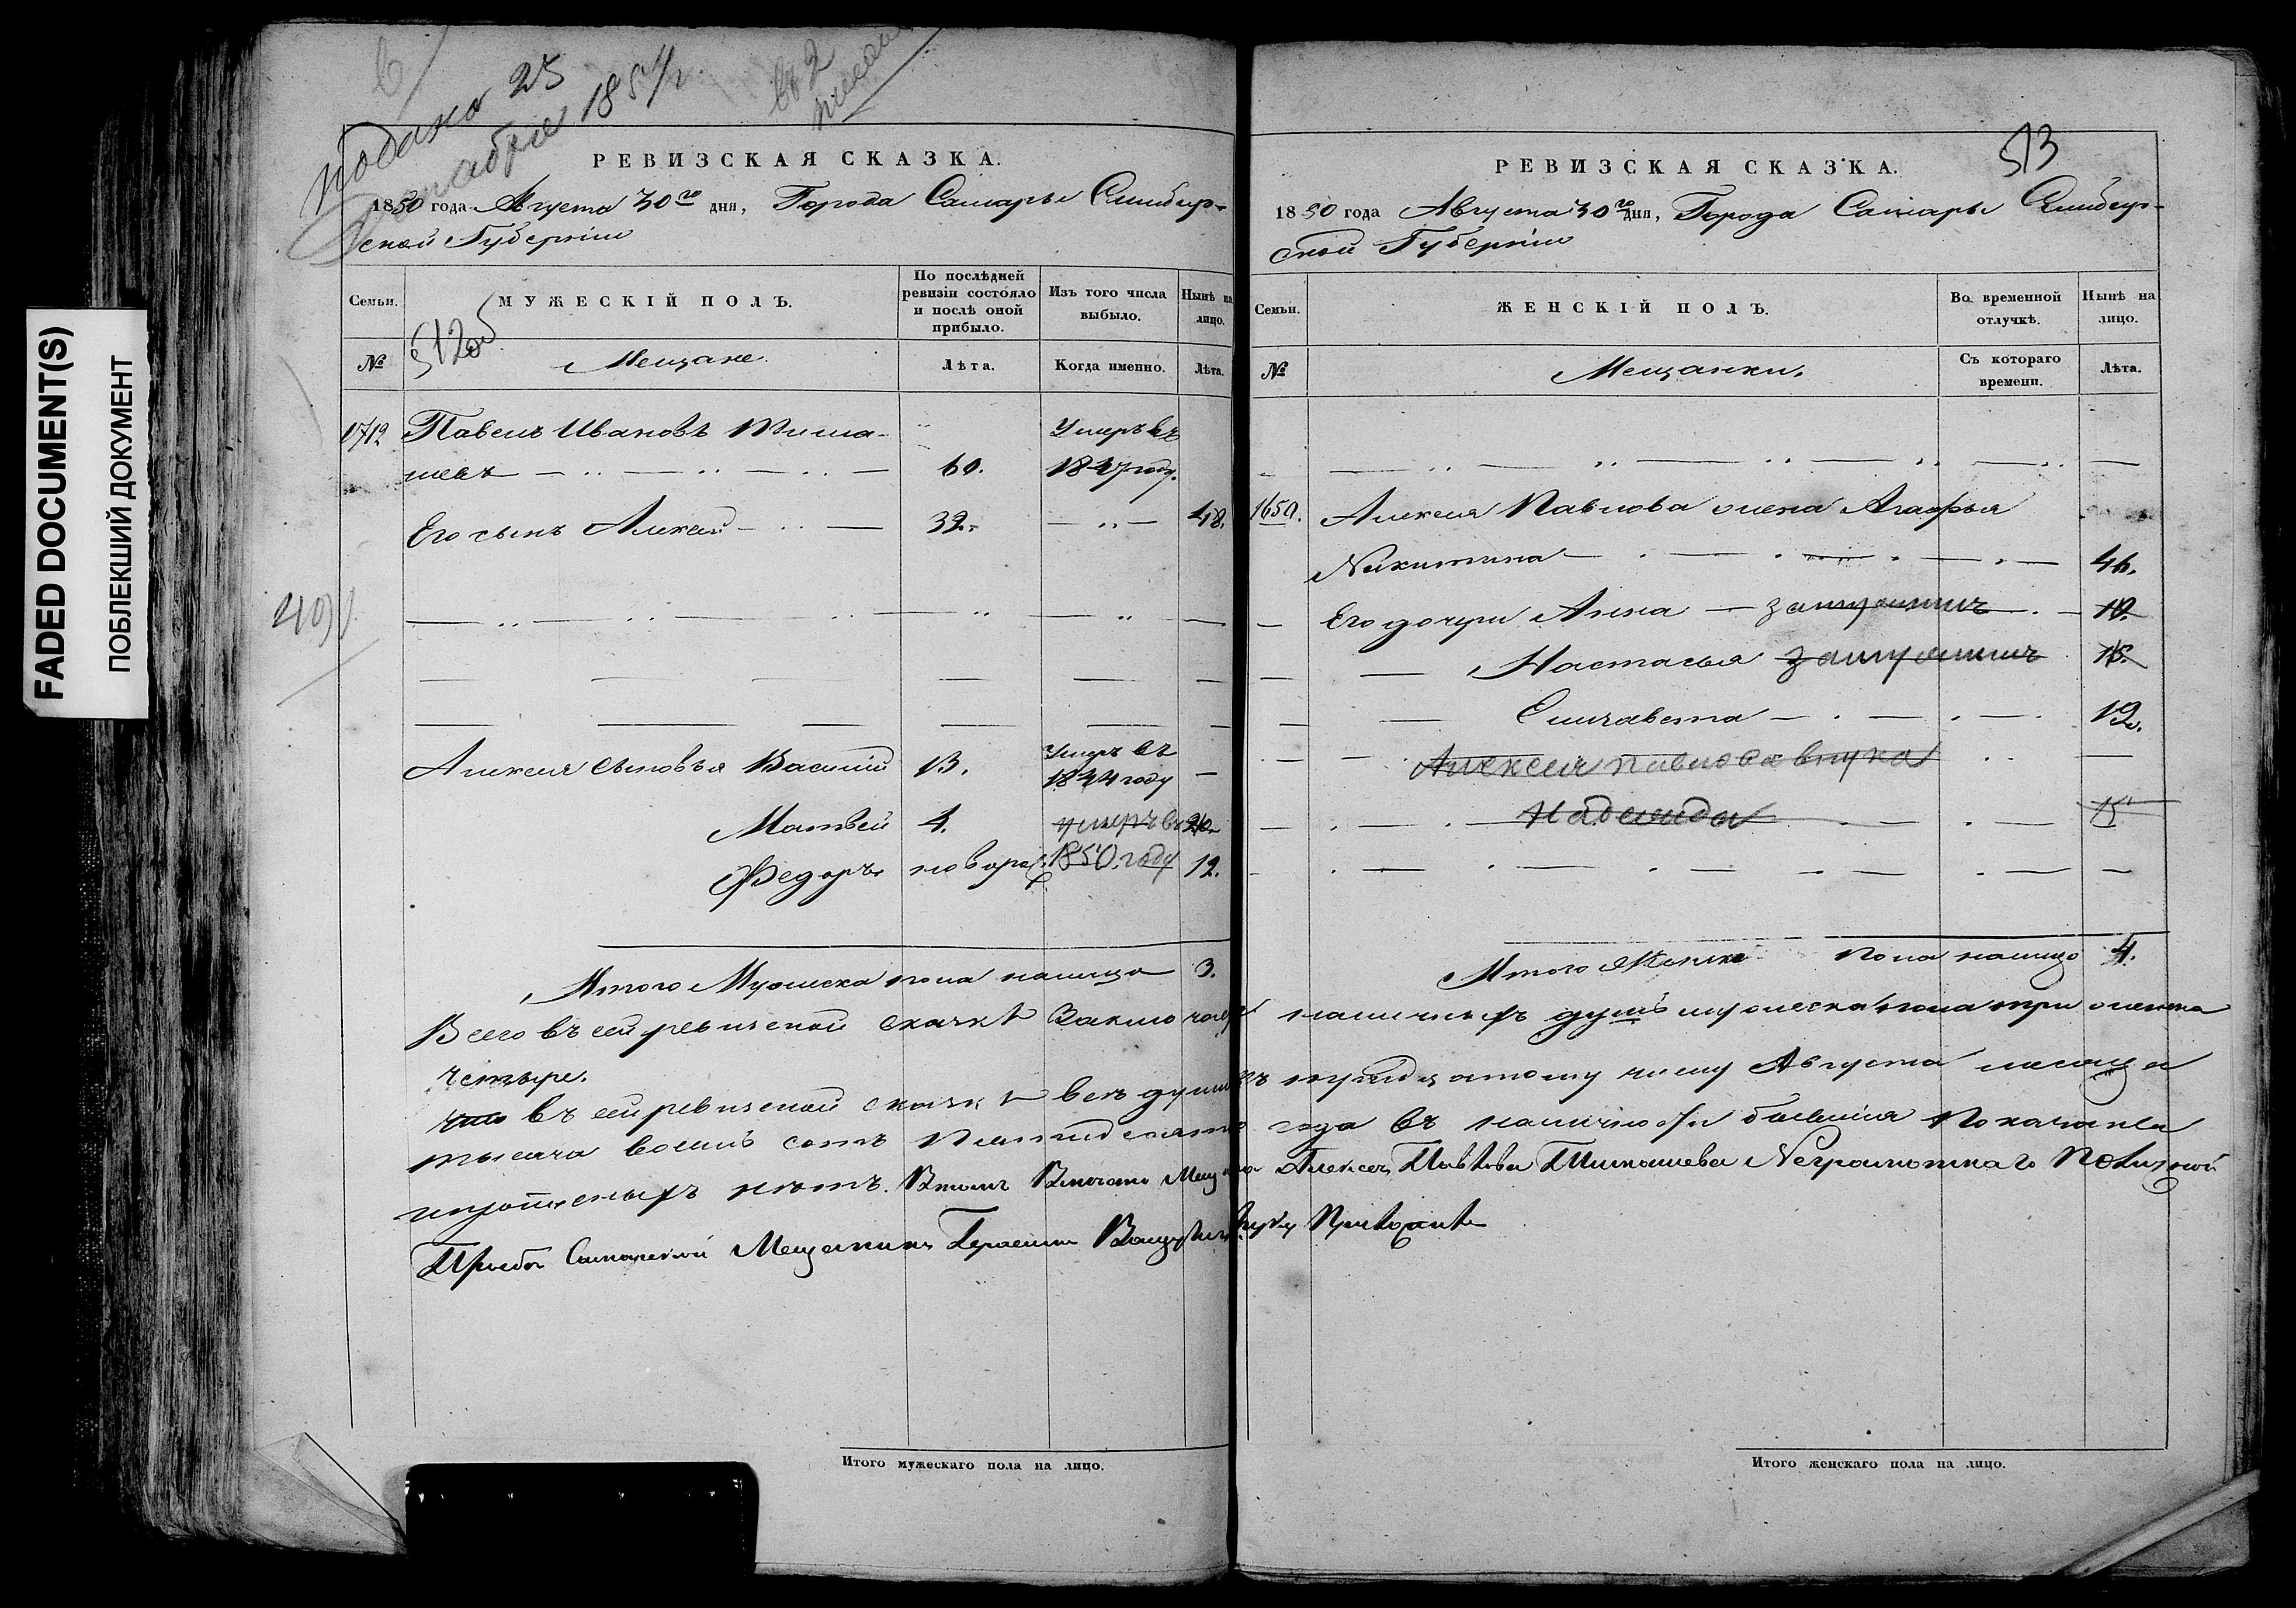 FADED DOCUMENT(S)
ПОБЛЕКШИЙ ДОКУМЕНТ
подана 25
1851/г.
РЕВИЗСКАЯ СКАЗКА.
1850 года Августа 30го дня, Города Самары Симбир-
ской Губернiи
Семьи.
МУЖЕСКІЙ ПОЛЪ.
По послѣдней
ревизіи состояло
и послѣ оной
прибыло.
Изъ того числа
выбыло.
Нынѣ на
лицо.
№
512об
Мещане.
Лѣта.
Когда именно.
Лѣта.
1712
Павелъ Ивановъ Тима-
шевъ
60.
Умеръ въ
1847 году.
Его сынъ Алексей
39.
48.
Алексея сыновья Василiй
13.
Умеръ въ
1844 году
Матвей
4.
умеръ въ
1850. году
Федоръ
новорож
12.
Итого Мужеска пола налицо 3.
Итого мужескаго пола на лицо.
513
РЕВИЗСКАЯ СКАЗКА.
1850 года Августа 30го дня, Города Самары Симбир-
ской Губернiи
Семьи.
ЖЕНСКІЙ ПОЛЪ.
Во временной
отлучкѣ.
Нынѣ на
лицо.
№
Мещанки.
Съ котораго
времени.
Лѣта.
1650.
Алексея Павлова жена Агафья
Никитина
46.
Его дочери Анна замужемъ
19.
Настасья замужемъ
Елизавета
12.
Алексея Павлова внука
Надежда
Итого Женска пола налицо 4.
Всего въ сей ревизской сказкѣ Заключается наличныхъ душъ мужеска пола три женска
четыре.
что въ сей ревизской сказкѣ все души къ тридцатому числу Августа месяца
тысяча восемь сотъ пятидесятаго года въ наличности бывшiя показаны
и нѣтъ. Втомъ Вместо Мещанина Алексея Павлова Тимашева Неграмотнаго По личной
Прозбе Самарской Мещанинъ Герасимъ руку Приложилъ
Итого женскаго пола на лицо.